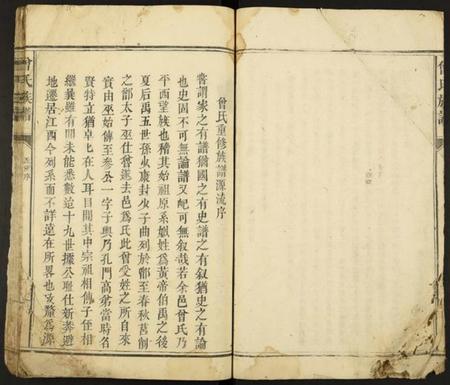 曾氏族譜
曾氏重修族譜源流序
嘗謂家之有譜猶國之有史譜之有叙猶史之有論
也史固不可無論譜又可無叙哉若余邑曾氏乃
平西望族也稽其始祖原系姒姓爲黃帝伯禹之後
夏后禹五世孫少康封少子曲列於鄫至春秋莒
之鄫太子巫仕魯遂去邑爲氏此曾受姓之所自來
實由巫始傳至參公一字子輿乃孔門高弟當時名
賢特立猶卓匕在人耳目間其中宗祖相傳子侄相
繼冀雖有聞未能悉數迨十九世據公恥仕新莽避
地遷居江西今列系而不詳遠在所畧也
曾氏族譜